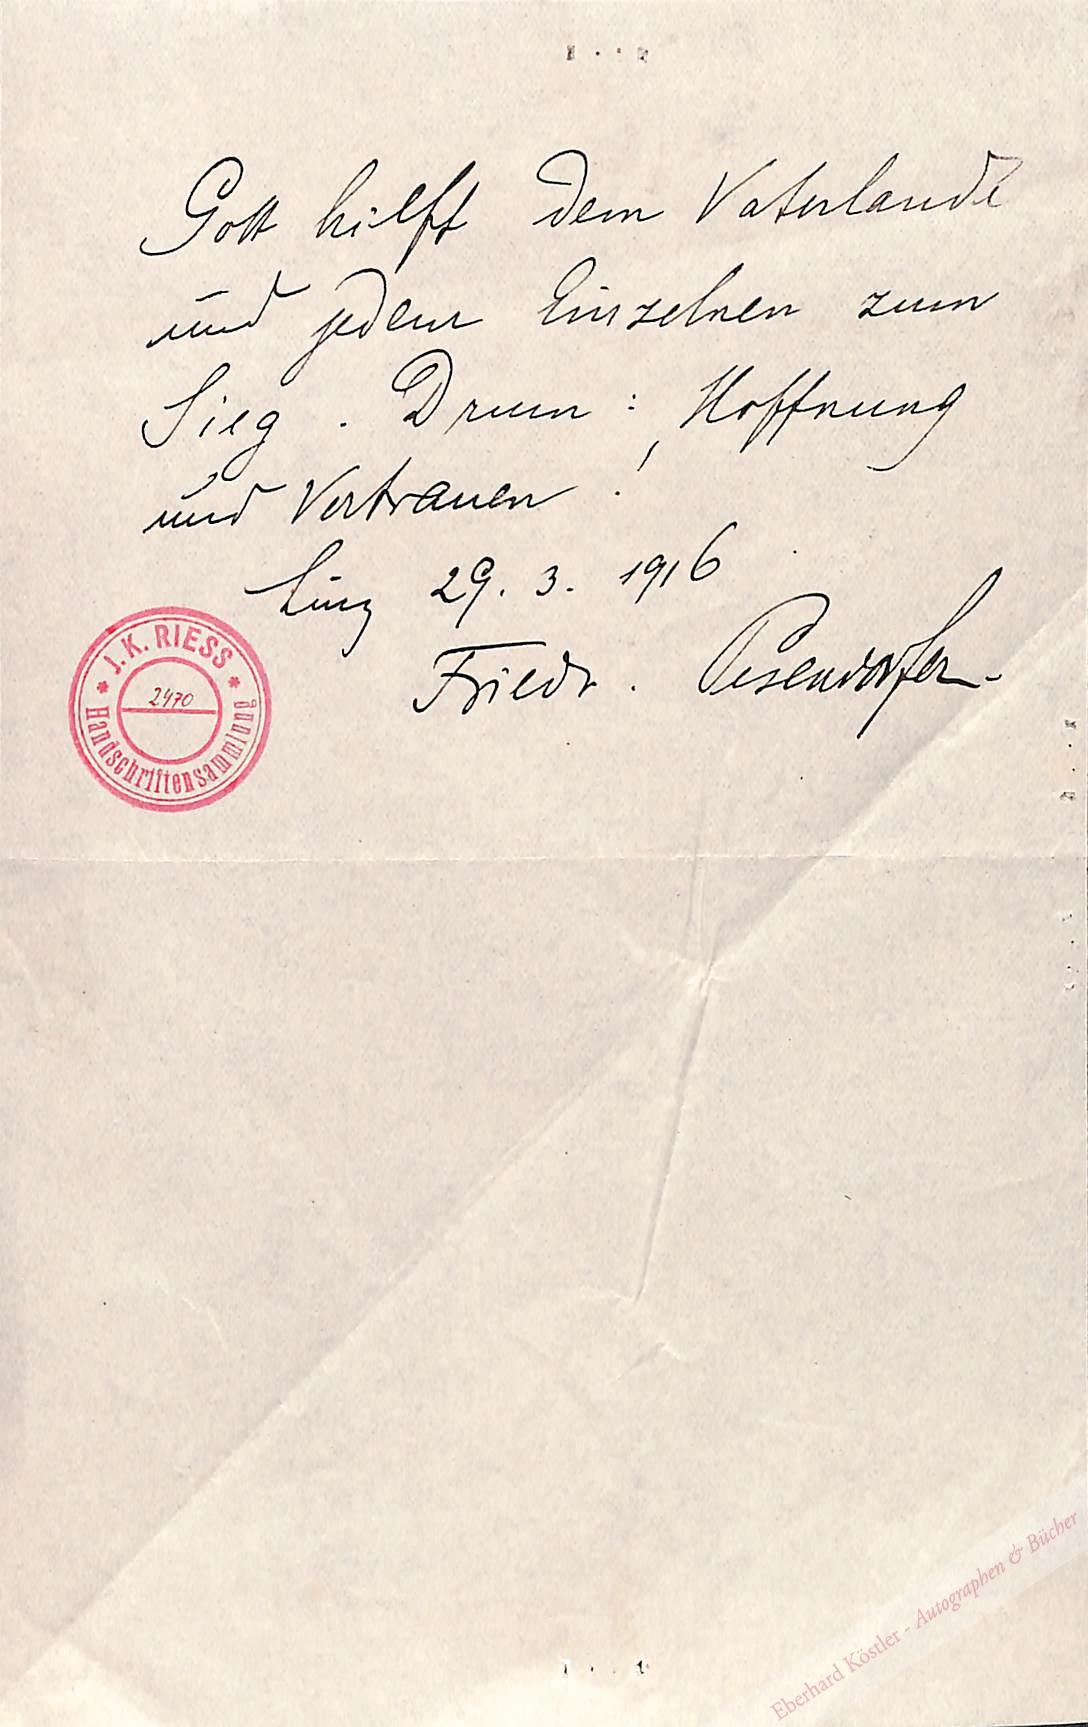 Gott hilft dem Vaterlande
und jedem Einzelnen zum
Sieg. Drum: Hoffnung
und Vertrauen!
Linz 29. 3. 1916
Friedr. Pesendorfer
J. K. RIESS
2470
Handschriftensammlung
Eberhard Köstler - Autographen & Bücher